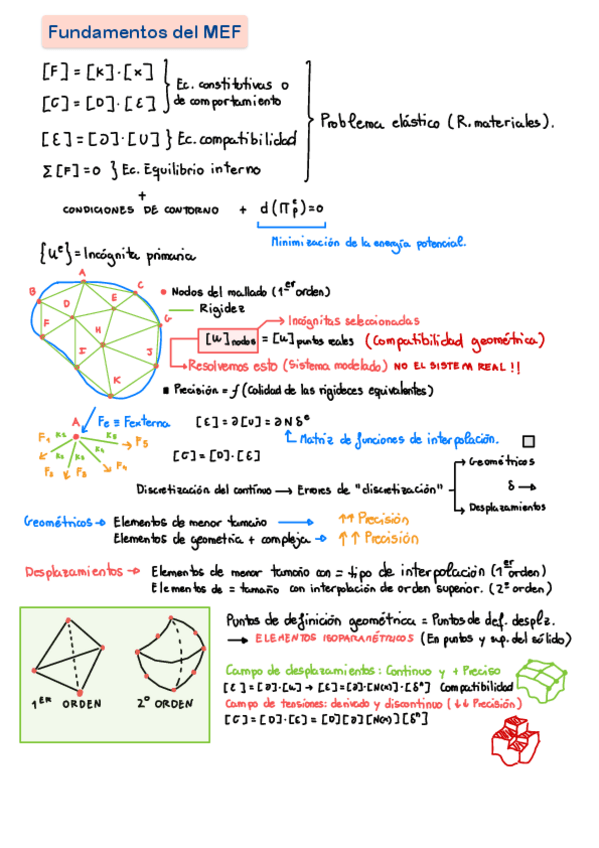 Fundamentos del MEF
[F] = [K]·[x]
Ec. constitutivas o
de comportamiento
[σ] = [D]·[ε]
[ε] = [∂]·[U] } Ec. compatibilidad
Problema elástico (R. materiales).
Σ[F]=0 } Ec. Equilibrio interno
+
CONDICIONES DE CONTORNO + d(Π
e
p
)=0
Minimización de la energía potencial.
{u^e} = Incógnita primaria
A
B
C
D
E
F
G
H
I
J
K
Nodos del mallado (1er orden)
Rigidez
Incógnitas seleccionadas
[u]nodos = [u]puntos reales (Compatibilidad geométrica)
Resolvemos esto (Sistema modelado) NO EL SISTEMA REAL!!
Precisión = f (Calidad de las rigideces equivalentes)
A
Fe ≡ Fexterna
F1
F2
F3
F4
F5
[ε] = ∂[U] = ∂N δ^e
Matriz de funciones de interpolación.
[σ] = [D]·[ε]
Discretización del contínuo → Errores de "discretización"
Geométricos
δ →
Desplazamientos
Geométricos → Elementos de menor tamaño → ↑↑ Precisión
Elementos de geometría + compleja → ↑↑ Precisión
Desplazamientos → Elementos de menor tamaño con = tipo de interpolación (1er orden)
Elementos de = tamaño con interpolación de orden superior. (2º orden)
1ER ORDEN
2º ORDEN
Puntos de definición geométrica = Puntos de def. despl.
→ ELEMENTOS ISOPARAMÉTRICOS (En puntos y sup. del sólido)
Campo de desplazamientos: Continuo y + Preciso
[ε] = [∂]·[u] → [ε]=[∂]·[N(x)]·[δ^n] Compatibilidad
Campo de tensiones: derivado y discontinuo (↓↓ Precisión)
[σ] = [D]·[ε] = [D][∂][N(x)][δ^n]